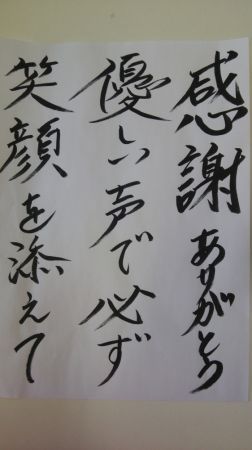 感謝ありがとう
優しい声で必ず
笑顔を添えて